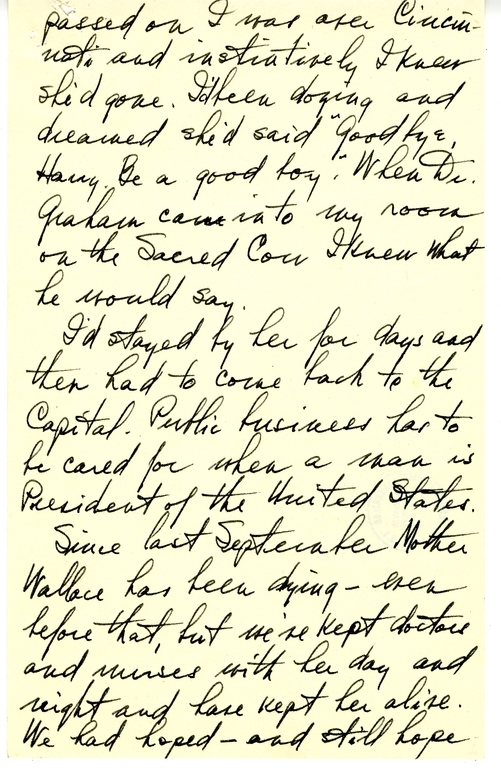 passed on I was over Cincin-
nati and instinctively I knew
she'd gone. I'd been dozing and
dreamed she'd said "Goodbye,
Harry. Be a good boy." When Dr.
Graham came into my room
on the Sacred Cow I knew what
he would say.
I'd stayed by her for days and
then had to come back to the
Capital. Public business has to
be cared for when a man is
President of the United States.
Since last September Mother
Wallace has been dying – even
before that, but we've kept doctors
and nurses with her day and
night and have kept her alive.
We had hoped – and still hope